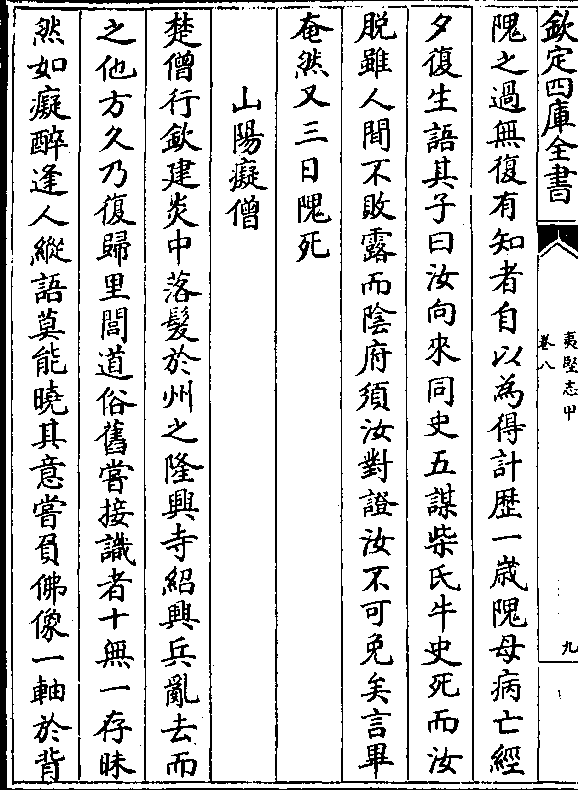 欽定四庫全書
夷堅志甲
卷八
九
隗之過無復有知者自以為得計歴一歲隗母病亡經
夕復生語其子曰汝向來同史五謀柴氏牛史死而汝
脱雖人間不敗露而陰府須汝對證汝不可免矣言畢
奄然又三日隗死
山陽癡僧
楚僧行欽建炎中落髮於州之隆興寺紹興兵亂去而
之他方久乃復歸里閭道俗舊嘗接識者十無一存昧
然如癡醉逢人縱語莫能曉其意嘗負佛像一軸於背